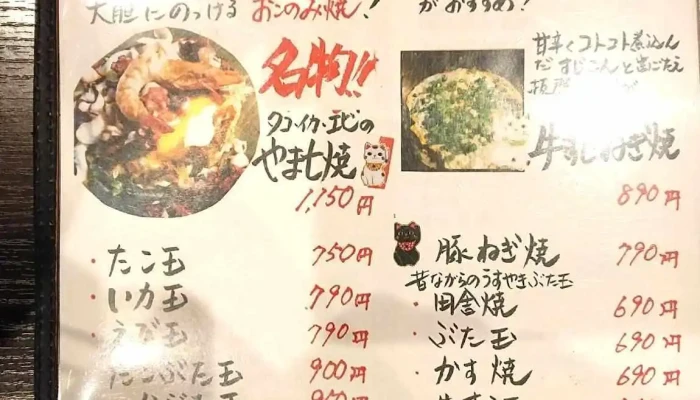 大胆にのっける おこのみ焼!
名物!!
タコ・イカ・エビの
やまも焼
1,150円
・たこ玉 750円
・いか玉 790円
・えび玉 790円
ぶた玉 900円
がおすすめ!
甘辛くコトコト煮込ん
だすじこんと歯ごたえ
牛すじねぎ焼
890円
豚ねぎ焼 790円
昔ながらのうすやきぶた玉
・田舎焼 690円
・ぶた玉 690円
・かす焼 690円